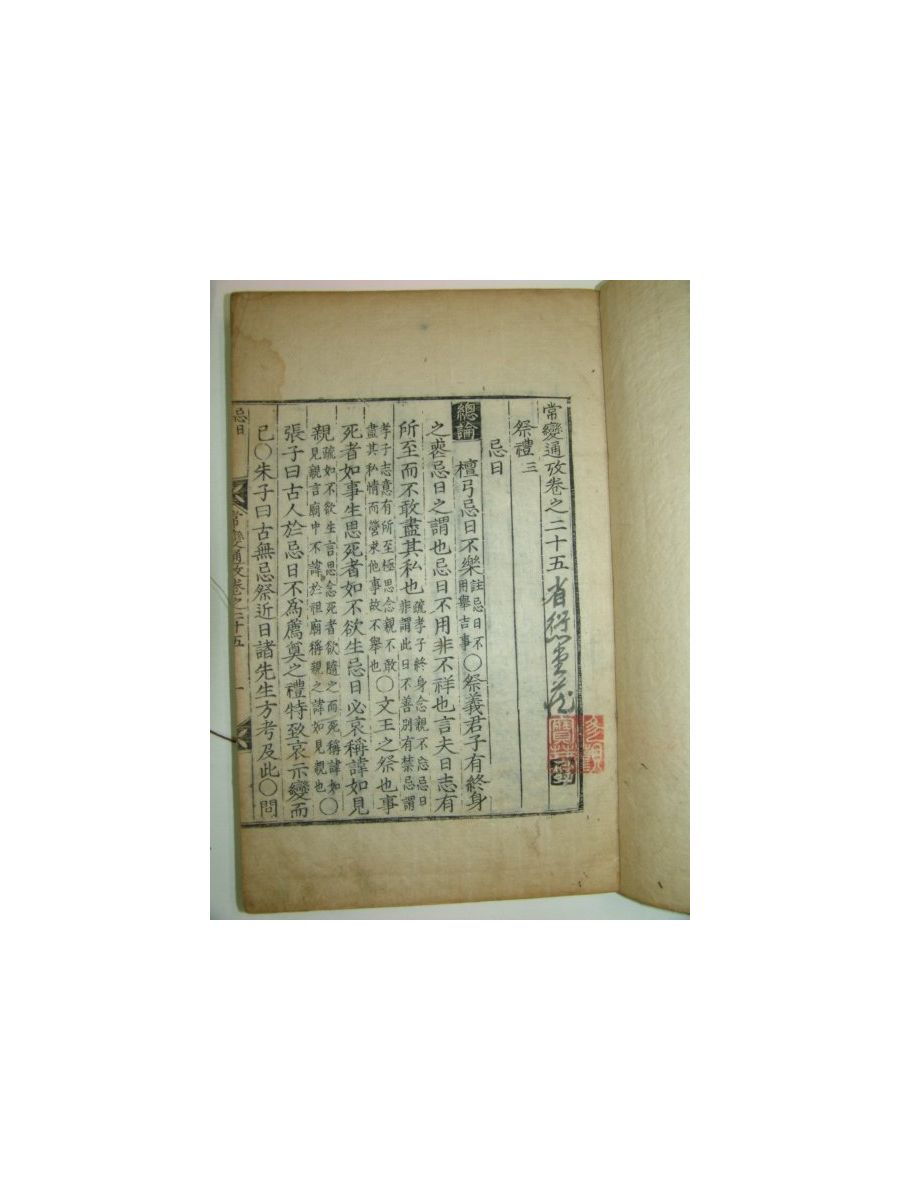 常變通攷卷之二十五
祭禮三
忌日
總論 檀弓忌日不樂註忌日不用舉吉事〇祭義君子有終身
之喪忌日之謂也忌日不用非不祥也言夫日志有
所至而不敢盡其私也疏孝子終身念親不忘忌日非謂此日不善別有禁忌謂
孝子志意有所至極思念親不敢盡其私情而營求他事故不舉也〇文王之祭也事
死者如事生思死者如不欲生忌日必哀稱諱如見
親疏如不欲生言思念死者欲隨之而死稱諱如見親言廟中不諱於祖廟稱親之諱如見親也〇
張子曰古人於忌日不爲薦奠之禮特致哀示變而
已〇朱子曰古無忌祭近日諸先生方考及此〇問
忌日
常變通攷卷之二十五
一